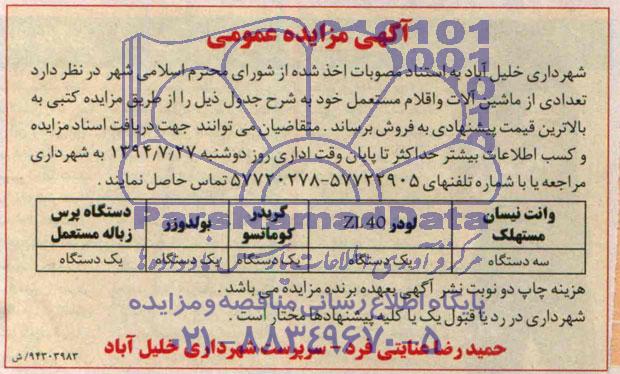 آگهی مزایده عمومی
شهرداری خلیل آباد به استناد مصوبات اخذ شده از شورای محترم اسلامی شهر در نظر دارد
تعدادی از ماشین آلات واقلام مستعمل خود به شرح جدول ذیل را از طریق مزایده کتبی به
بالاترین قیمت پیشنهادی به فروش برساند . متقاضیان می توانند جهت دریافت اسناد مزایده
و کسب اطلاعات بیشتر حداکثر تا پایان وقت اداری روز دوشنبه ۱۳۹۴/۷/۲۷ به شهرداری
مراجعه یا با شماره تلفنهای ۵۷۷۲۲۹۰۵-۵۷۷۲۰۲۷۸ تماس حاصل نمایند .
وانت نیسان مستهلک لودر ZL40 گریدر کوماتسو بولدوزر دستگاه پرس زباله مستعمل
سه دستگاه یک دستگاه یک دستگاه یک دستگاه یک دستگاه
هزینه چاپ دو نوبت نشر آگهی بعهده برنده مزایده می باشد .
شهرداری در رد یا قبول یک یا کلیه پیشنهادها مختار است .
حمید رضا عنایتی فرد – سرپرست شهرداری خلیل آباد
۹۴۳۰۳۹۸۳/ش
ParsNamadData
پایگاه اطلاع رسانی مناقصه و مزایده
۰۲۱-۸۸۳۴۹۶۷۰-۵